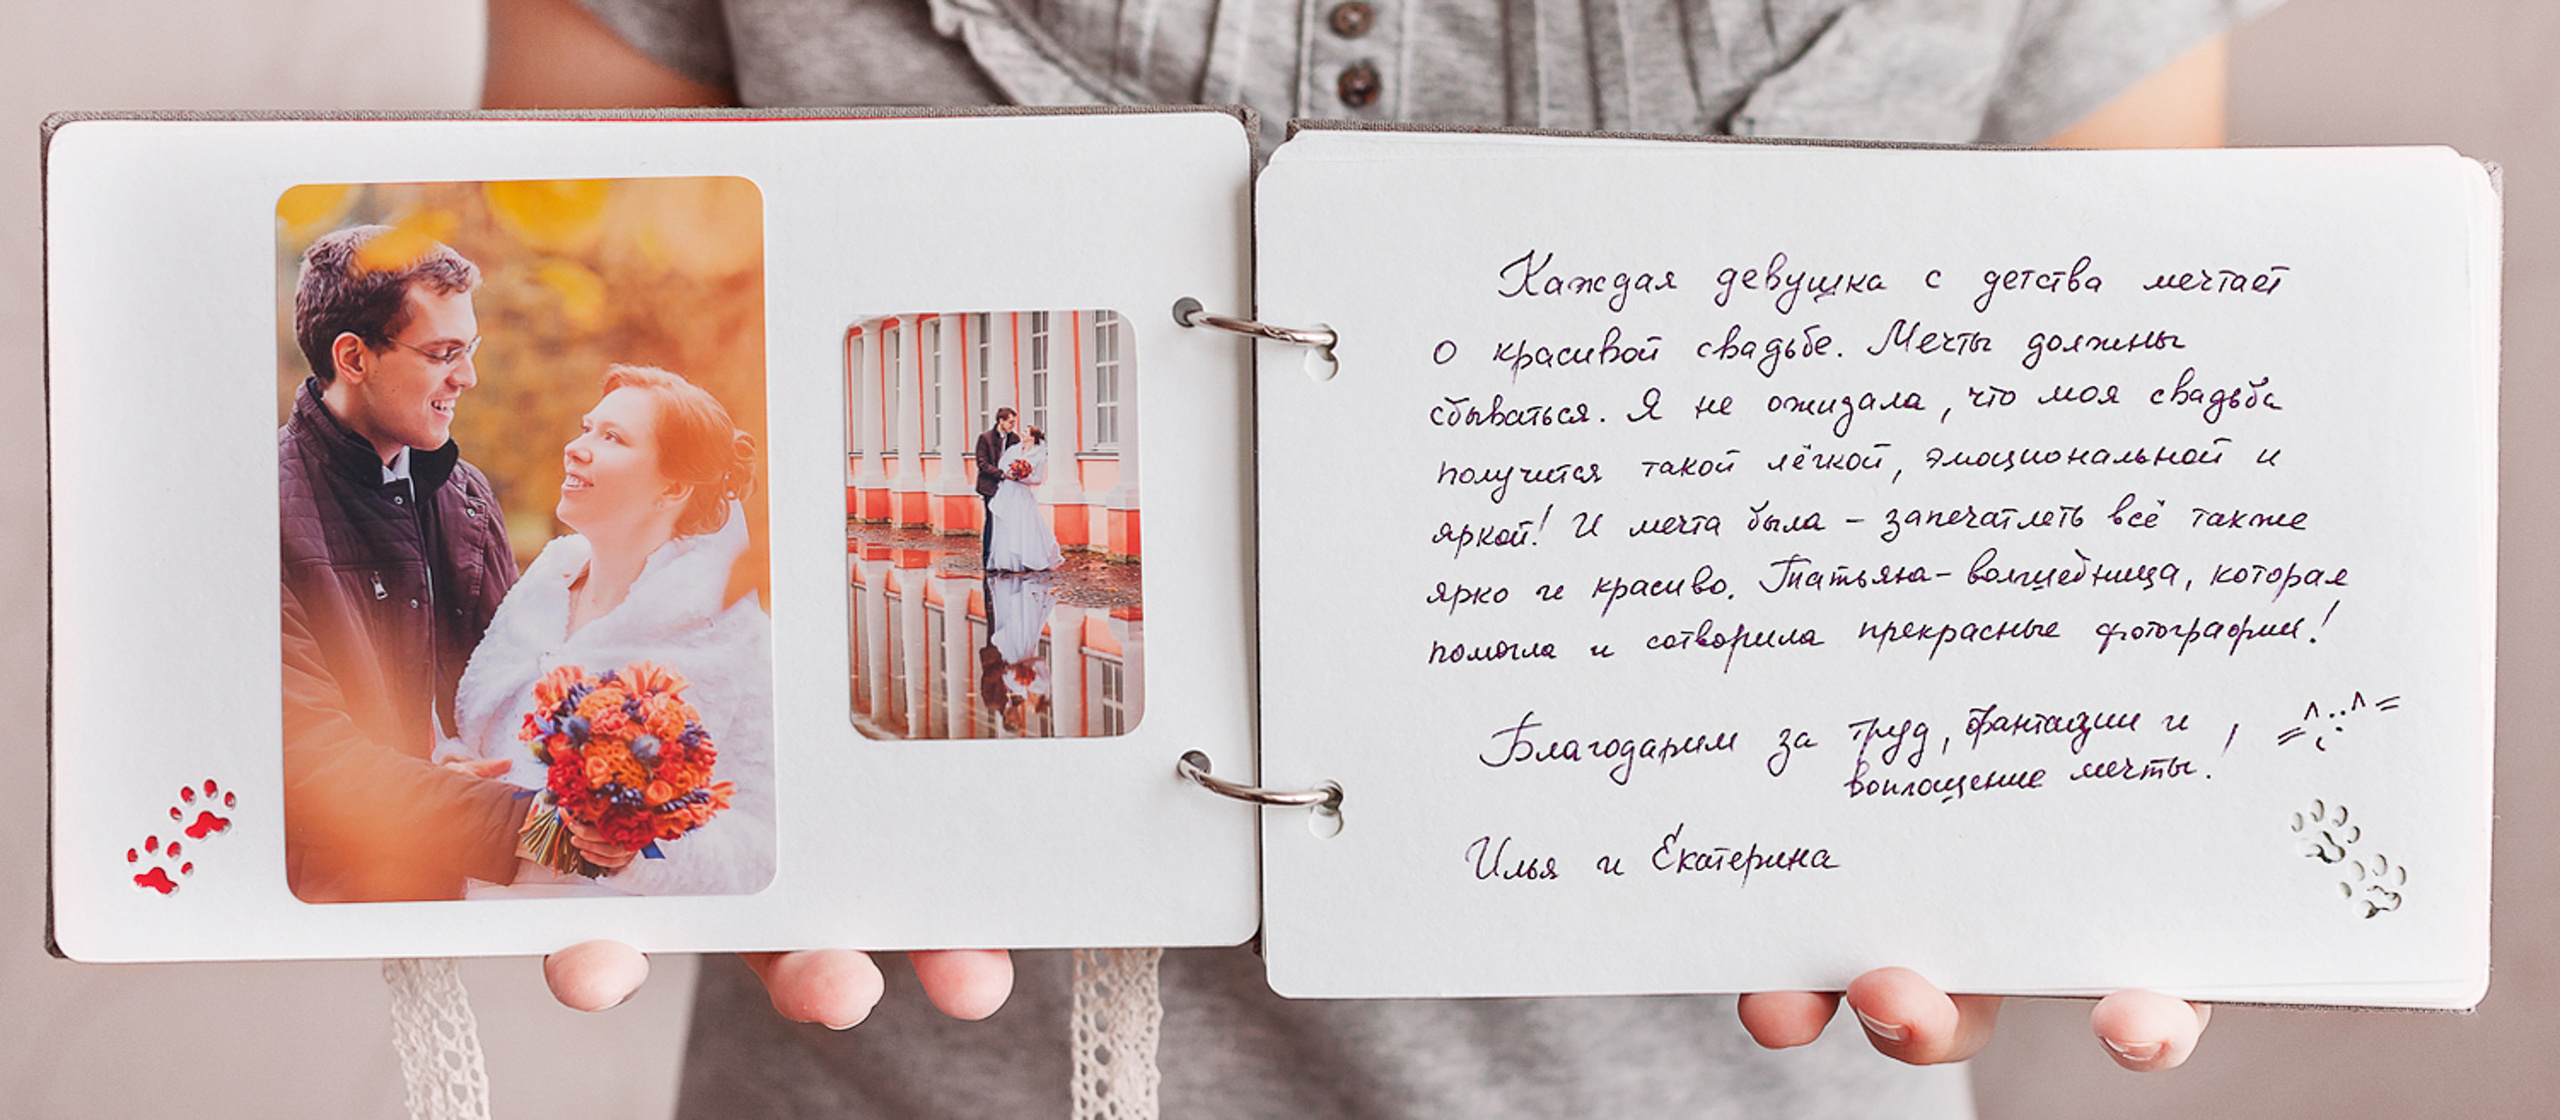 Каждая девушка с детства мечтает
о красивой свадьбе. Мечты должны
сбываться. Я не ожидала, что моя свадьба
получится такой лёгкой, эмоциональной и
яркой! И мечта была – запечатлеть всё также
ярко и красиво. Татьяна – волшебница, которая
помогла и сотворила прекрасные фотографии!
Благодарим за труд, фантазии и
воплощение мечты.
Илья и Екатерина